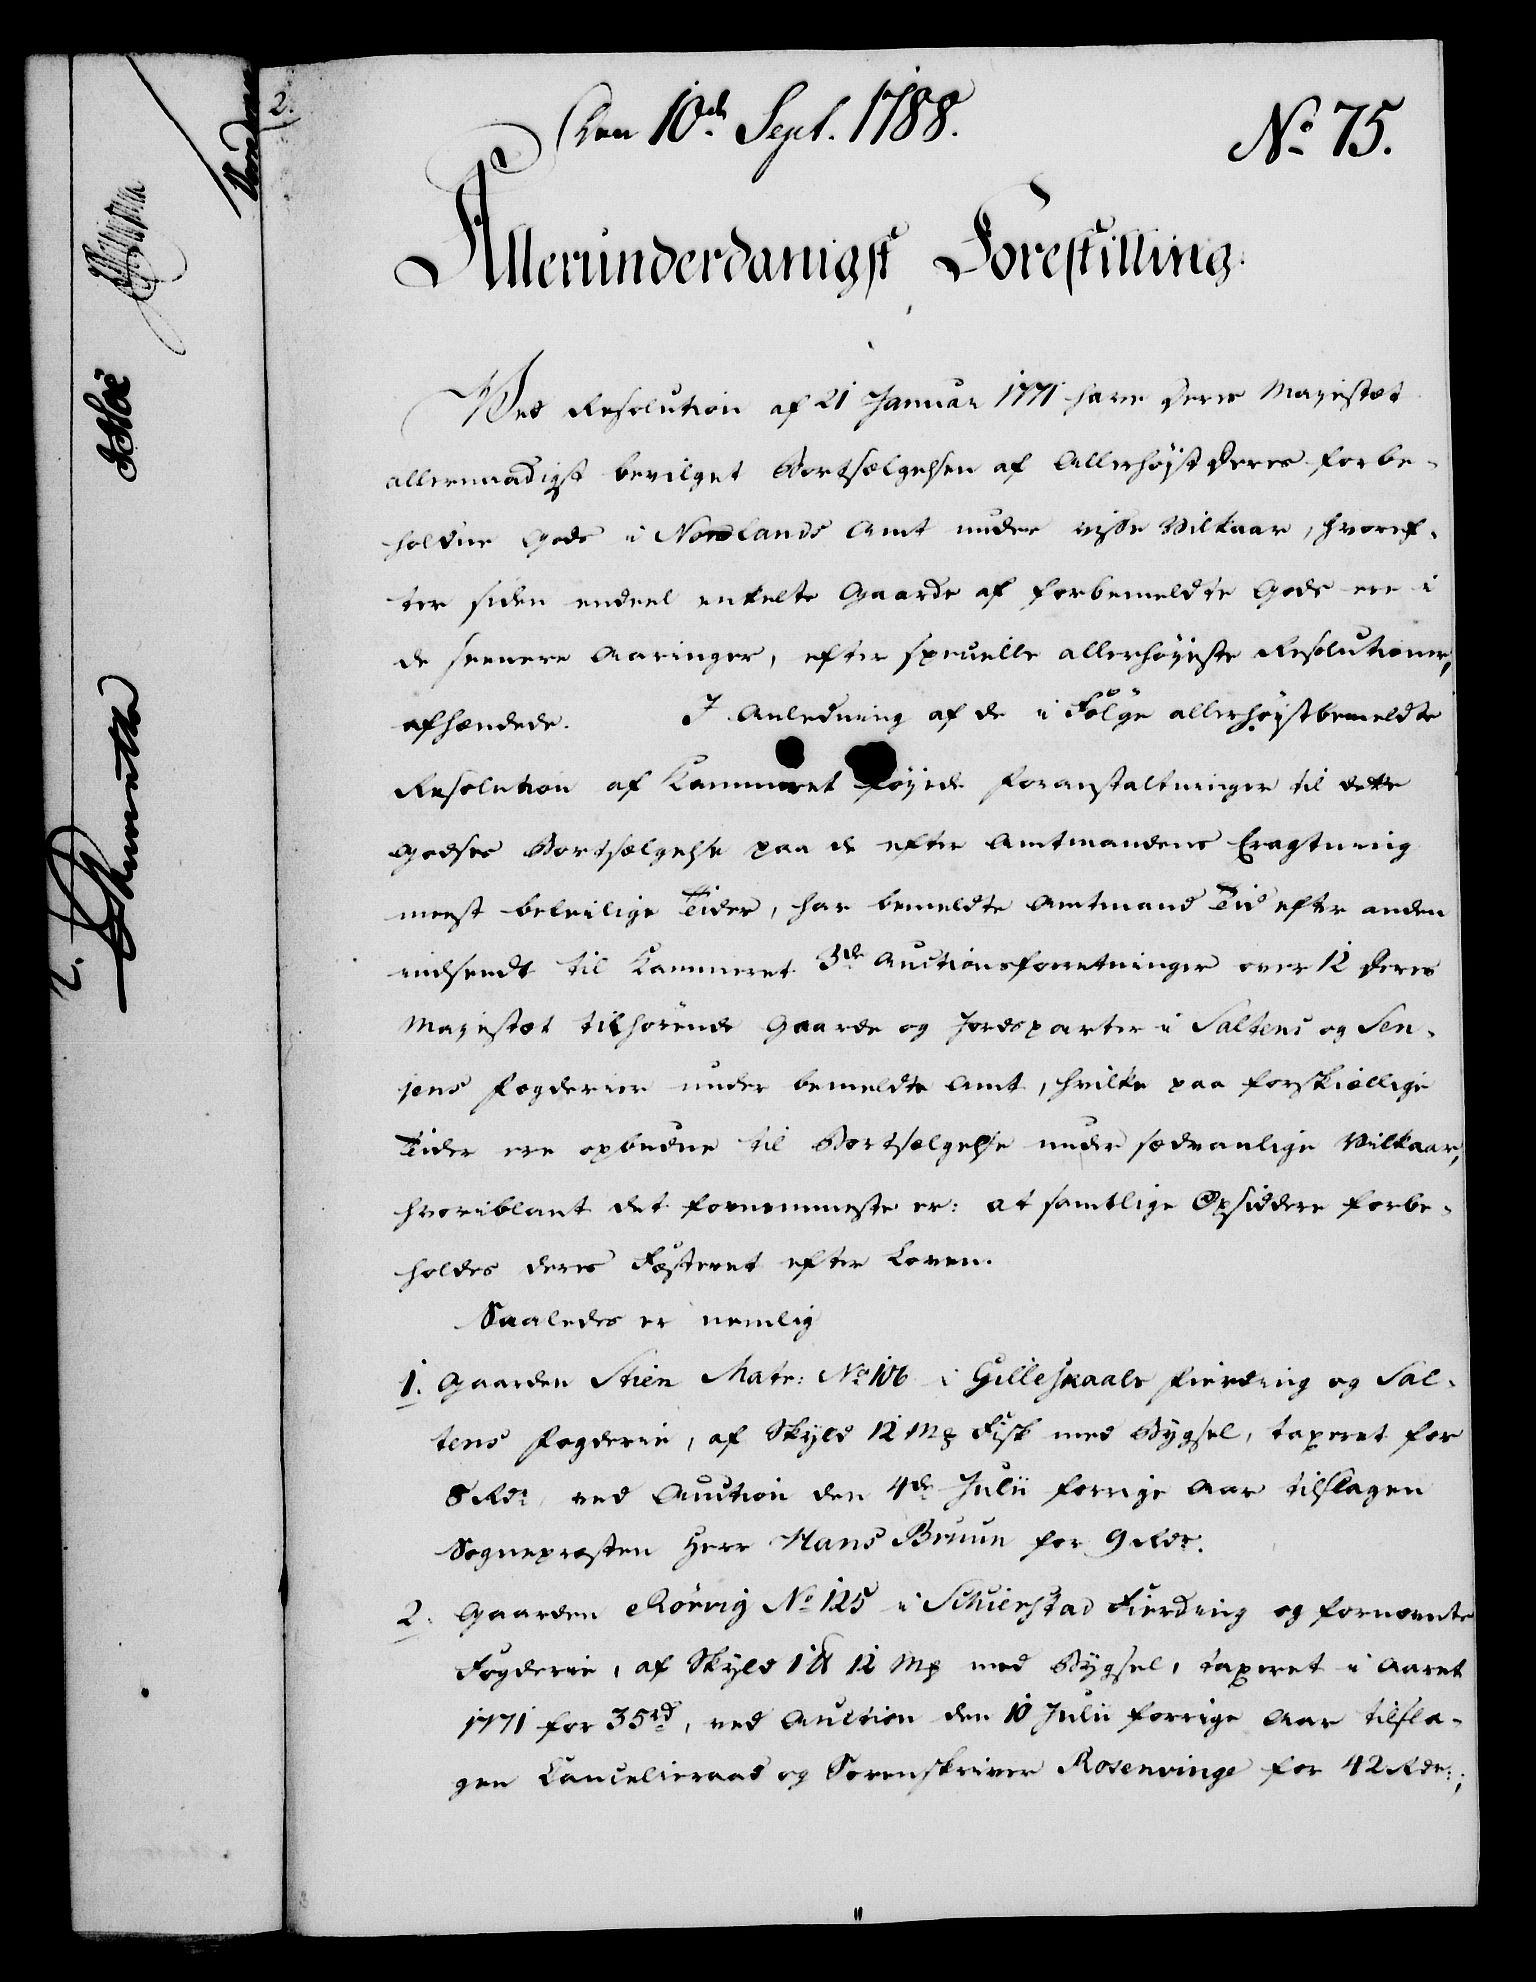 2.
Den 10de Sept. 1788.
No 75.
Allerunderdanigst Forestilling.
Ved Resolution af 21 Januar 1771 have Deres Majestæt
allernaadigst bevilget Bortsælgelsen af Allerhøjst Deres forbe-
holdne Gods i Nordlands Amt under visse Vilkaar, hvoref-
ter siden endeel enkelte Gaarde af forbemeldte Gods ere i
de seenere Aaringer, efter spesielle allerhøyeste Resolutioner,
afhændede. I Anledning af de i Følge allerhøystbemeldte
Resolution af Kammeret føyede Foranstaltninger til dette
Godses Bortsælgelse paa de efter Amtmandens Eragtning
meest beleilige Tider, har bemeldte Amtmand Tid efter anden
indsendt til Kammeret 3de Auctionsforretninger over 12 Deres
Majestæt tilhørende Gaarde og Jordsparter i Saltens og Sen-
jens Fogderier under bemeldte Amt, hvilke paa forskiællige
Tider ere opbudne til Bortsælgelse under sædvanlige Vilkaar,
hvoriblant det fornemmeste er: at samtlige Opsiddere forbe-
holdes deres Fæsteret efter Loven.
Saaledes er nemlig
1. Gaarden Stien Matr: No 106 i Gilleskaals Fierding og Sal-
tens Fogderie, af Skyld 12 Mg Fisk med Bygsel, taxeret for
8 Rdr, ved Auction den 4de Julii forrige Aar tilslagen
Sognepræsten Herr Hans Bruun for 9 Rdr.
2. Gaarden Rörvig No 125 i Schierstad Fierding og fornævnte
Fogderie, af Skyld 1 ℔ 12 Mg med Bygsel, taxeret i Aaret
1771 for 35rd, ved Auction den 10 Julii forrige Aar tilsla-
gen Cancelieraad og Sorenskriver Rosenvinge for 42 Rdr:;